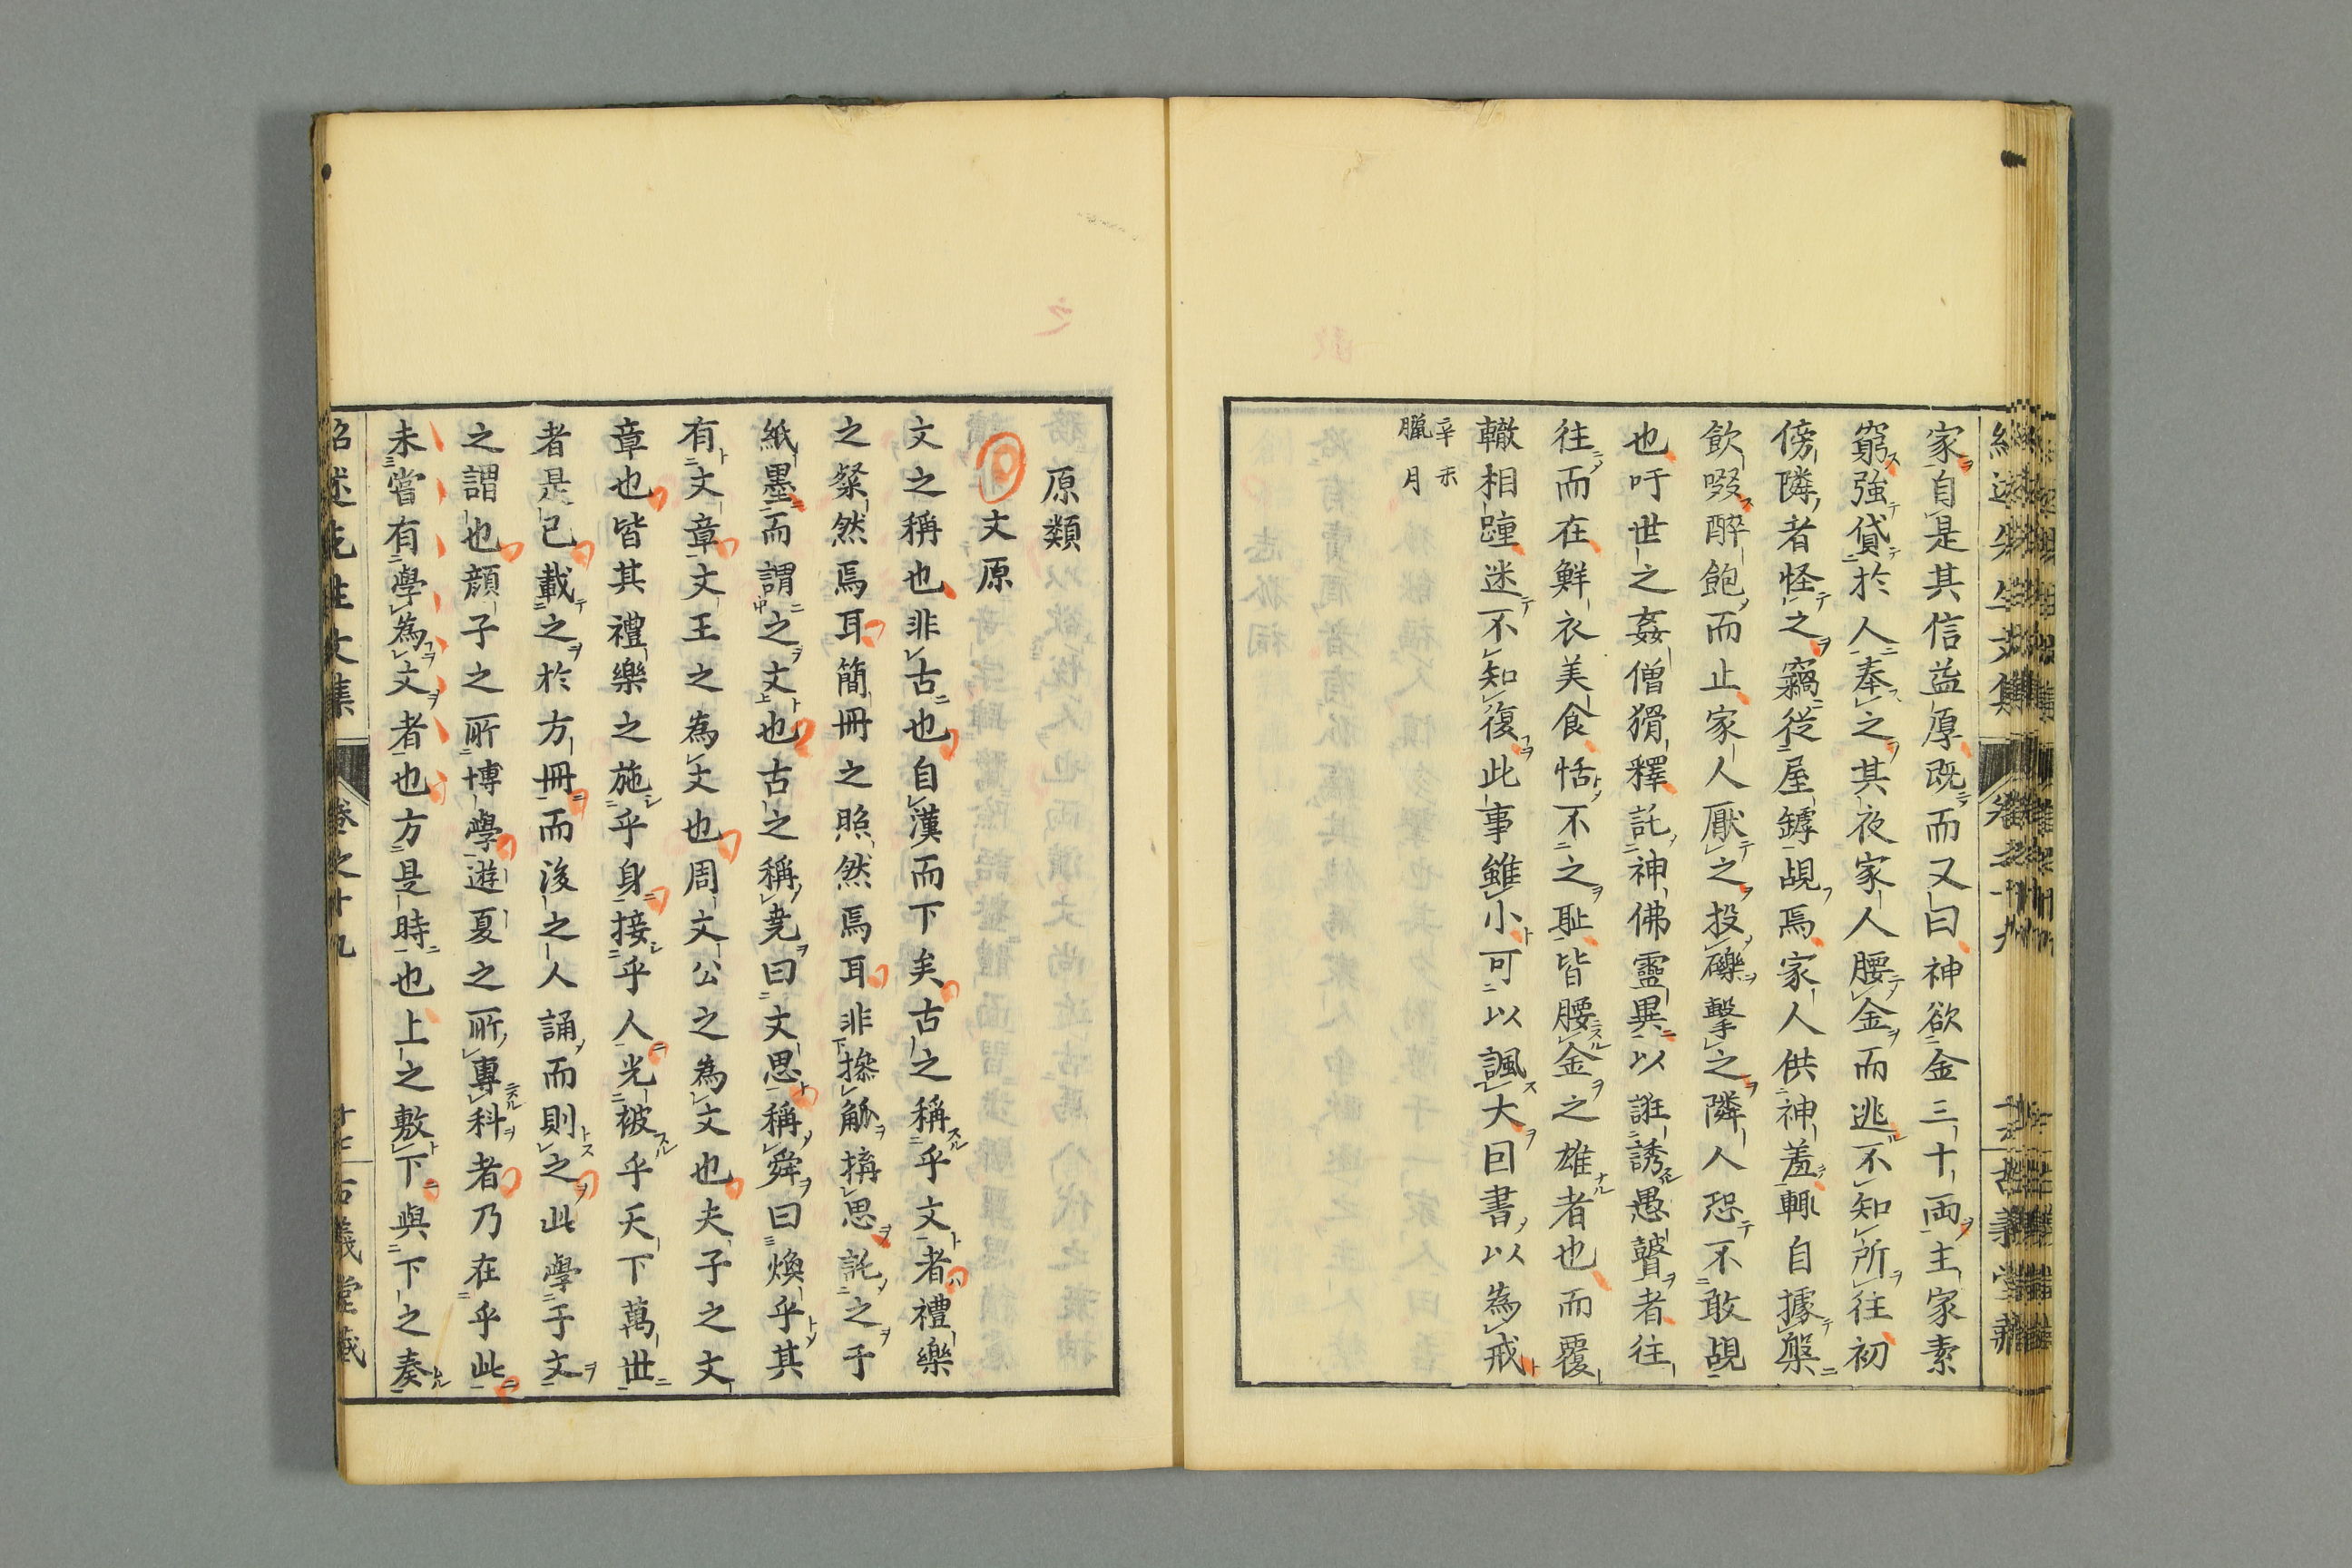 家自是其信益厚既而又曰神欲金三十両主家素
窮強貸於人奉之其夜家人腰金而逃不知所往初
傍隣者怪之竊從屋罅覘焉家人供神羞輒自據槃
飲啜醉飽而止家人厭之投礫擊之隣人恐不敢覘
也吁世之姦僧猾釋託神佛靈異以誑誘愚瞽者往
往而在鮮衣美食恬不之耻皆腰金之雄者也而覆
轍相踵迷不知復此事雖小可以諷大囙書以為戒
辛未
臘月
原類
文原
文之稱也非古也自漢而下矣古之稱乎文者禮樂
之粲然焉耳簡冊之照然焉耳非搽觚搆思託之于
紙墨而謂之文也古之稱堯曰文思稱舜曰煥乎其
有文章文王之為文也周文公之為文也夫子之文
章也皆其禮樂之施乎身接乎人光被乎天下萬世
者是已載之於方冊而後之人誦而則之此學于文
之謂也顔子之所博學遊夏之所專科者乃在乎此
未嘗有學為文者也方是時也上之敷下與下之奏
紹述先生文集 卷之十九 十七 古義堂藏